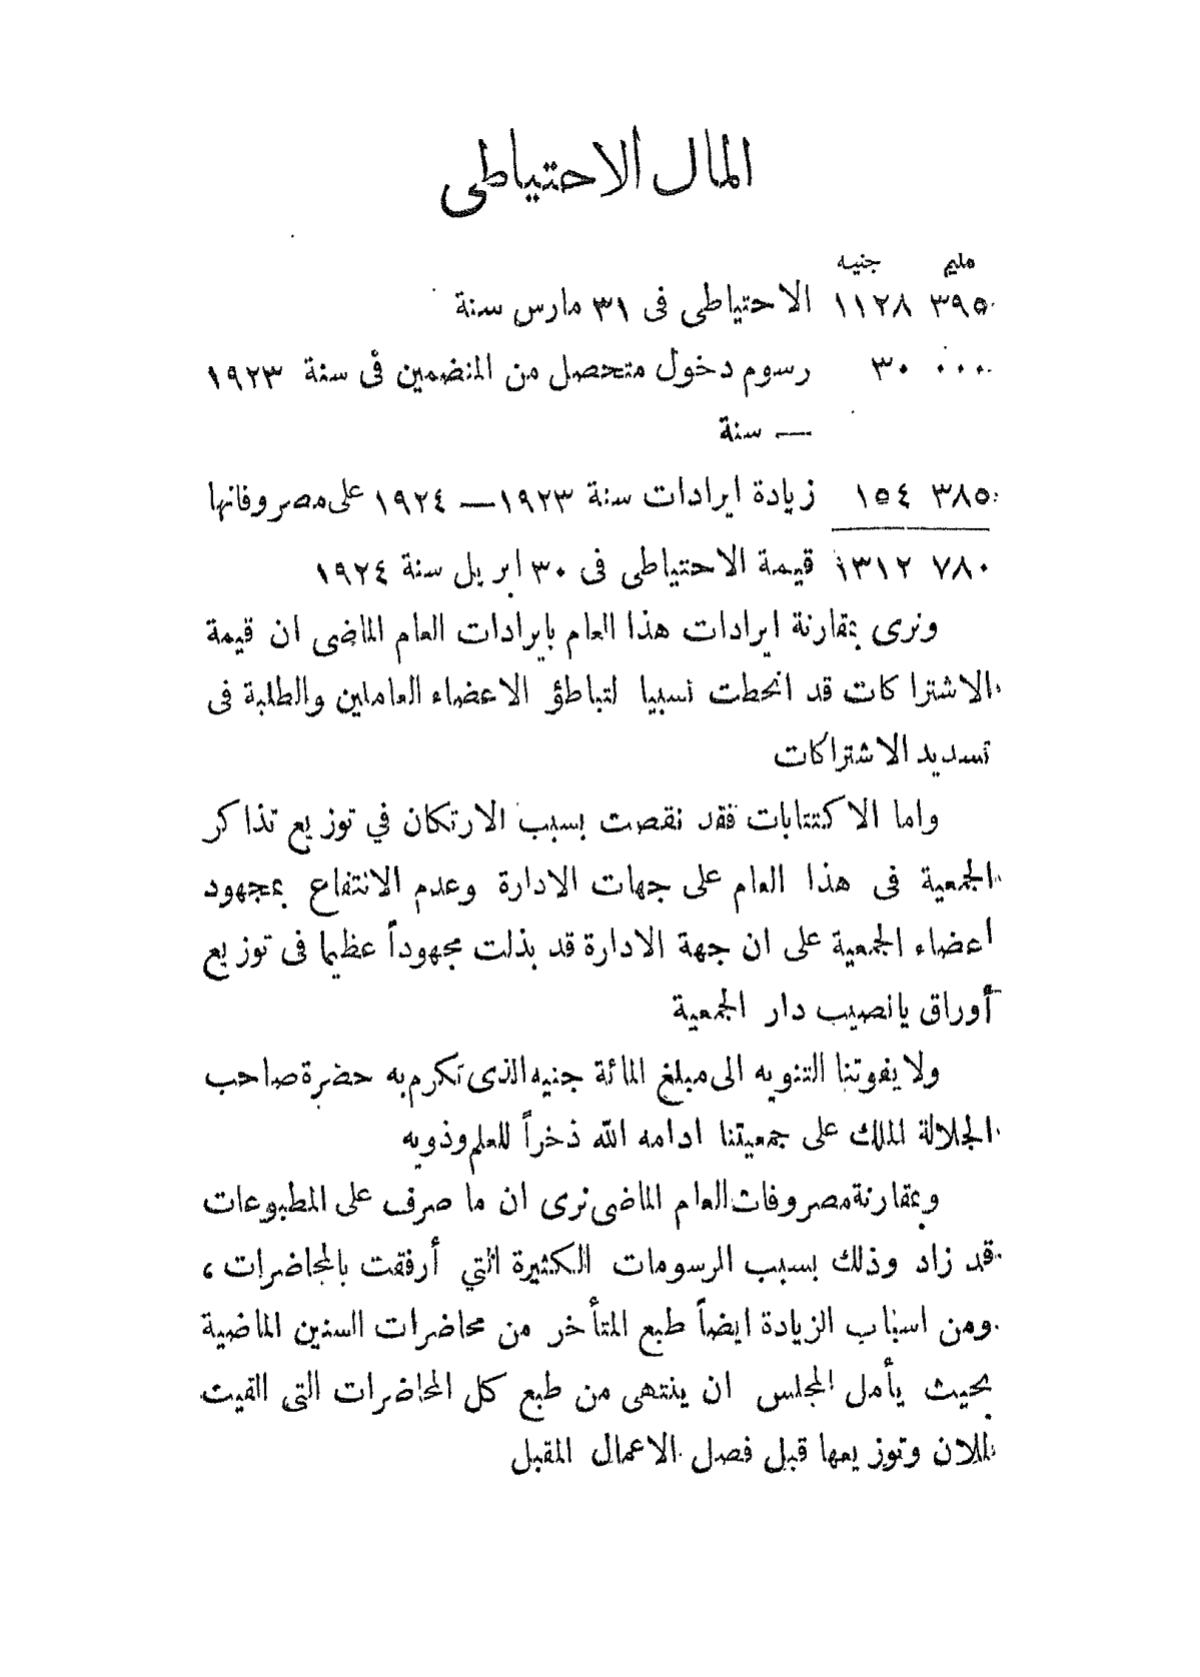 المال الاحتياطى
مليم جنيه
٣٩٥ ١١٢٨ الاحتياطى فى ٣١ مارس سنة
٠٠٠ ٣٠ رسوم دخول متحصل من المنضمين فى سنة ١٩٢٣
— سنة
٣٨٥ ١٥٤ زيادة ايرادات سنة ١٩٢٣ — ١٩٢٤ على مصروفاتها
٧٨٠ ١٣١٢ قيمة الاحتياطى فى ٣٠ ابريل سنة ١٩٢٤
ونرى بمقارنة ايرادات هذا العام بايرادات العام الماضى ان قيمة
الاشتراكات قد انحطت نسبيا لتباطؤ الاعضاء العاملين والطلبة فى
تسديد الاشتراكات
واما الاكتتابات فقد نقصت بسبب الارتكان في توزيع تذاكر
الجمعية فى هذا العام على جهات الادارة وعدم الانتفاع بمجهود
اعضاء الجمعية على ان جهة الادارة قد بذلت مجهوداً عظيما فى توزيع
أوراق يانصيب دار الجمعية
ولا يفوتنا التنويه الى مبلغ المائة جنيه الذى تكرم به حضرة صاحب
الجلالة الملك على جمعيتنا ادامه الله ذخراً للعلم وذويه
وبمقارنة مصروفات العام الماضى نرى ان ما صرف على المطبوعات
قد زاد وذلك بسبب الرسومات الكثيرة التي أرفقت بالمحاضرات ،
ومن اسباب الزيادة ايضاً طبع المتأخر من محاضرات السنين الماضية
بحيث يأمل المجلس ان ينتهى من طبع كل المحاضرات التى القيت
للان وتوزيعها قبل فصل الاعمال المقبل